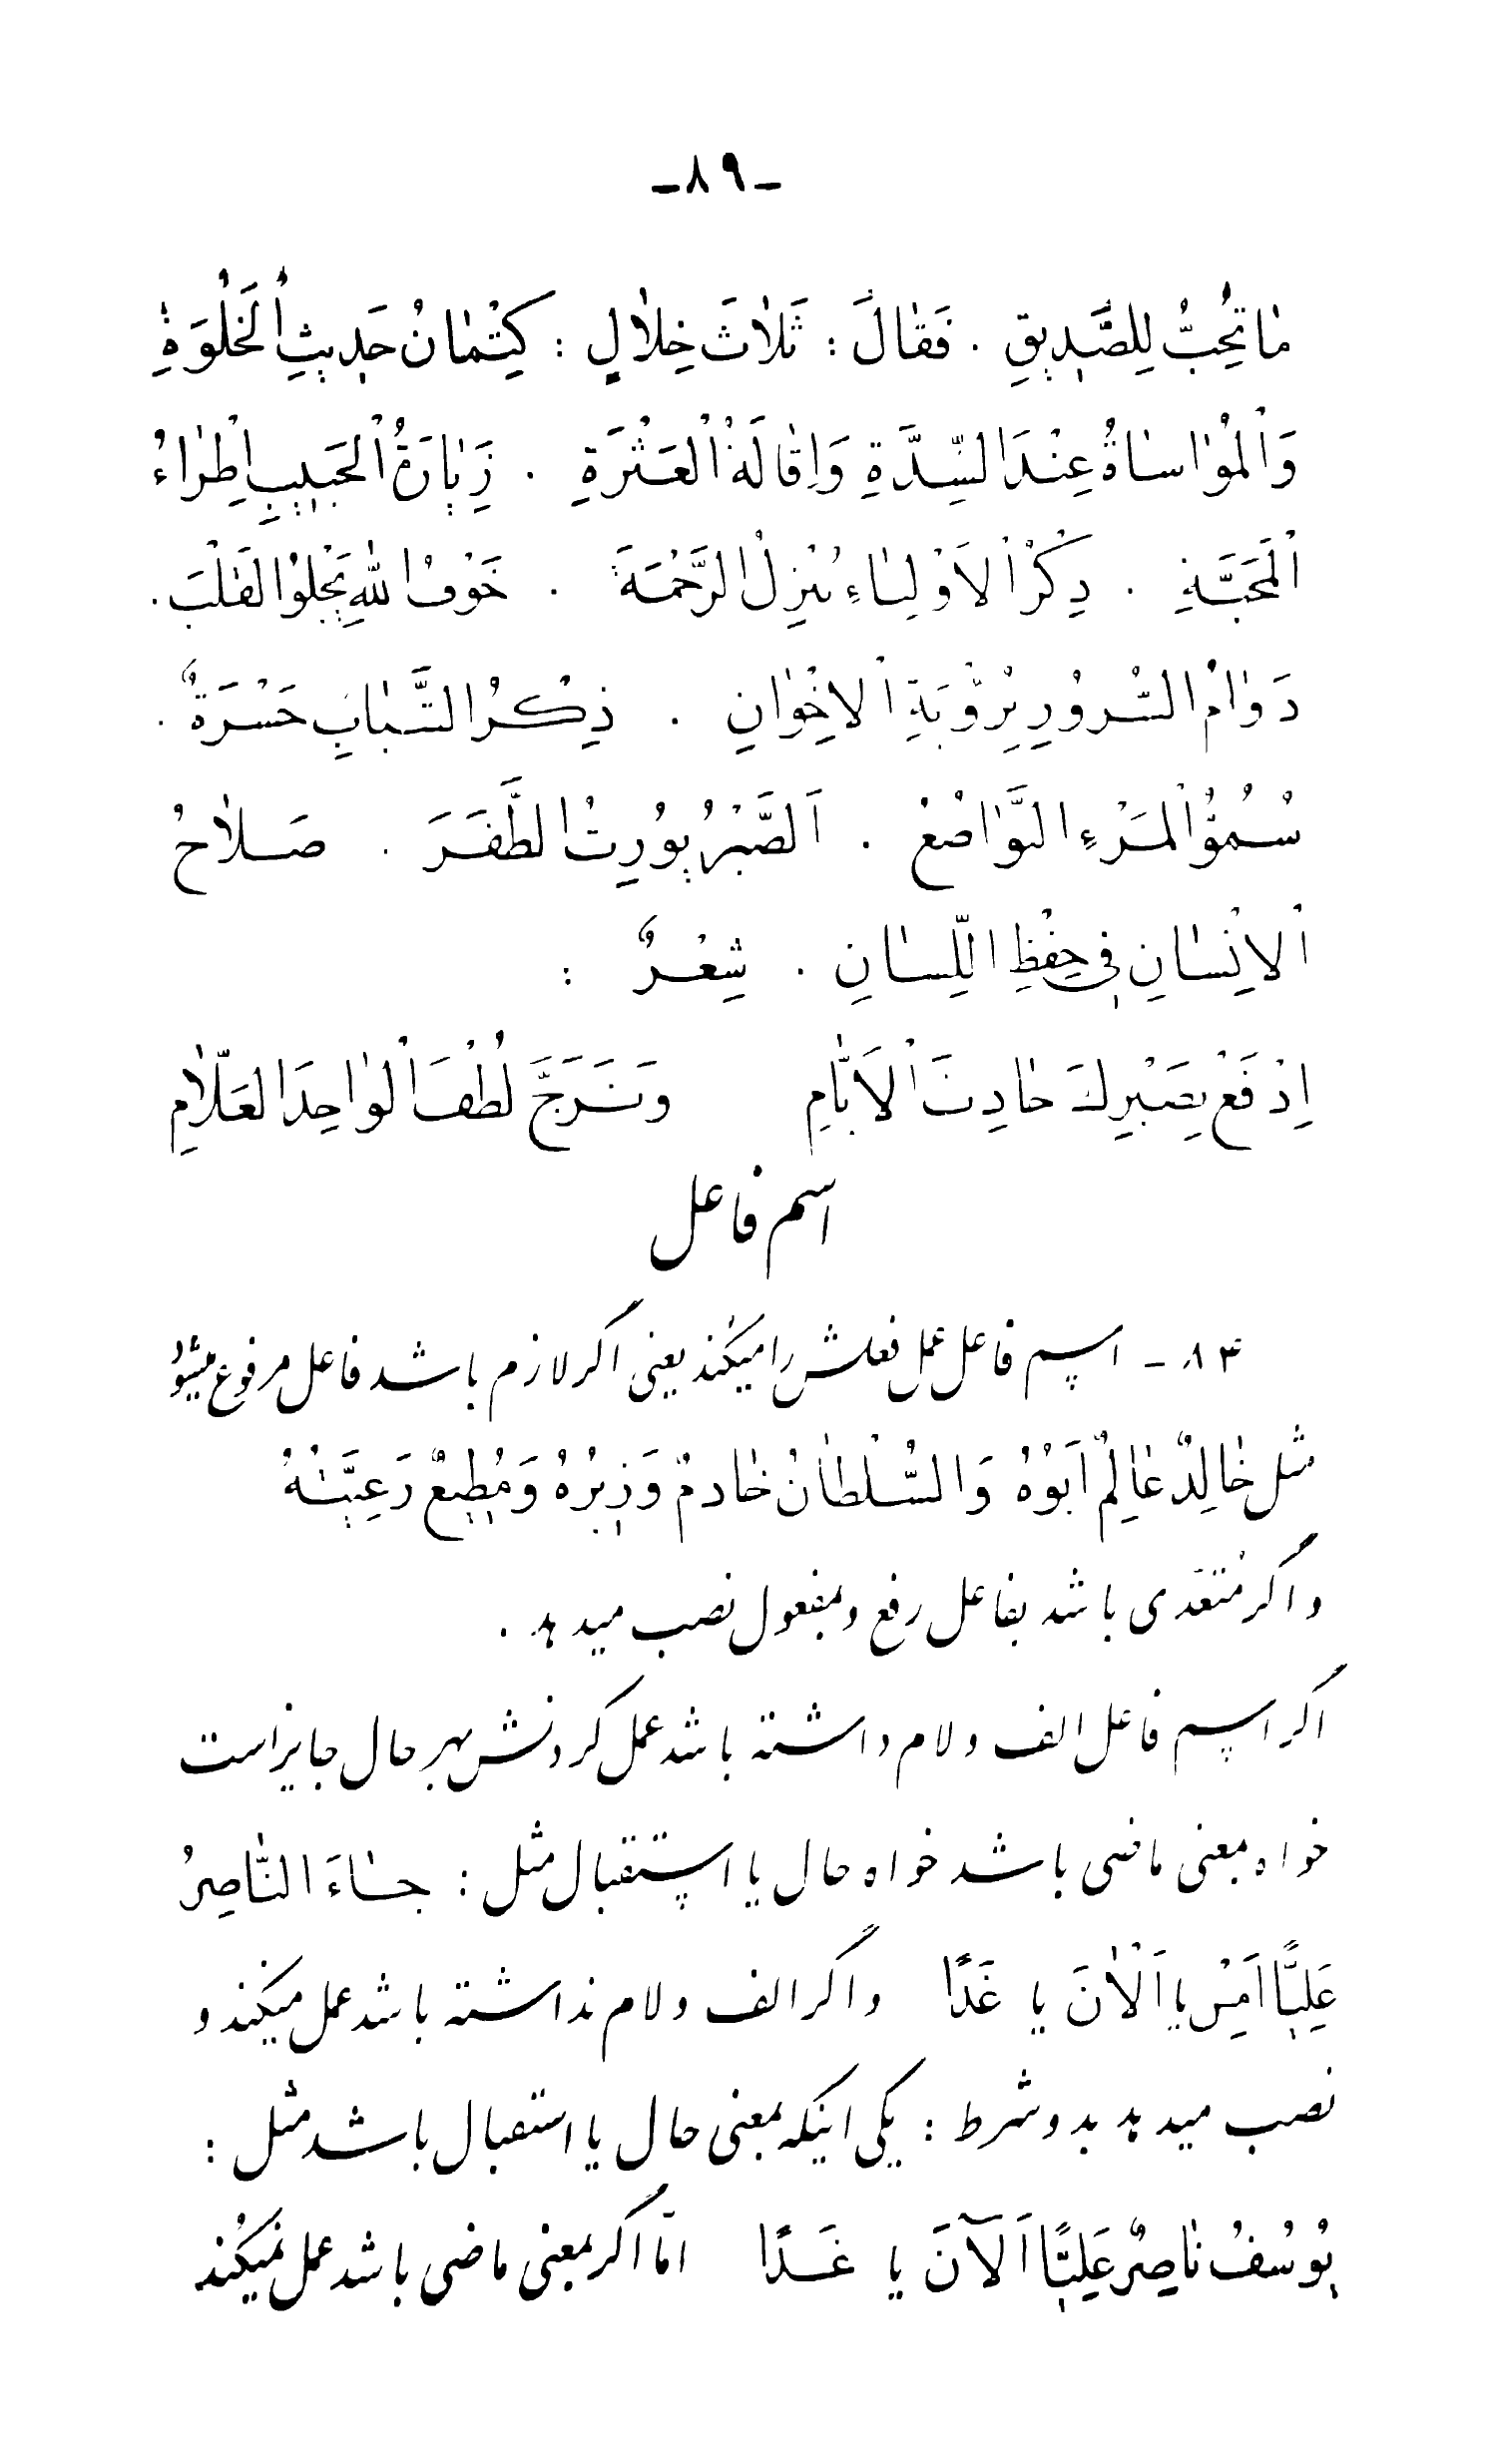 -۸۹-
مٰا تُحِبُّ لِلصَّدِیقِ . فَقٰالَ : ثَلاٰثَ خِلاٰلٍ : کِتْمٰانُ حَدِیثِ الْخَلْوَةِ
وَالْمُوٰاسٰاةُ عِنْدَ الشِّدَّةِ وَاِقٰالَةُ الْعَثْرَةِ . زِیٰارَةُ الْحَبِیبِ اِطْرٰاءُ
الْمَحَبَّةِ . ذِکْرُ الْاَوْلِیٰاءِ یُنْزِلُ الرَّحْمَةَ . خَوْفُ اللهِ یَجْلُوا القَلْبَ .
دَوٰامُ السُّرُورِ بِرُؤْیَةِ الْاِخْوٰانِ . ذِکْرُ الشَّبٰابِ حَسْرَةٌ .
سُمُوُّ الْمَرْءِ التَّوٰاضُعُ . اَلصَّبْرُ یُورِثُ الظَّفَرَ . صَلاٰحُ
الْاِنْسٰانِ فِی حِفْظِ اللِّسٰانِ . شِعْرٌ :
اِدْفَعْ بِصَبْرِكَ حٰادِثَ الْاَیّٰامِ وَتَرَجَّ لُطْفَ الْوٰاحِدِ العَلّاٰمِ
اسم فاعل
۸۳ - اسم فاعل عمل فعلش را میکند یعنی اگر لازم باشد فاعل مرفوع میشود
مثل خٰالِدٌ عٰالِمٌ اَبُوْهُ وَالسُّلْطٰانُ خٰادِمٌ وَزِیرُهُ وَمُطِیعٌ رَعِیَّتُهُ
واگر متعدّی باشد بفاعل رفع و بمفعول نصب میدهد .
اگر اسم فاعل الف و لام داشته باشد عمل کردنش بهر حال جایز است
خواه بمعنی ماضی باشد خواه حال یا استقبال مثل : جٰاءَ النّٰاصِرُ
عَلِیًّا اَمْسِ یا اَلْاٰنَ یا غَدًا واگر الف و لام نداشته باشد عمل میکند و
نصب میدهد بدو شرط : یکی اینکه بمعنی حال یا استقبال باشد مثل :
یُوسُفُ نٰاصِرٌ عَلِیًّا اَلآنَ یا غَدًا امّا اگر بمعنی ماضی باشد عمل نمیکند